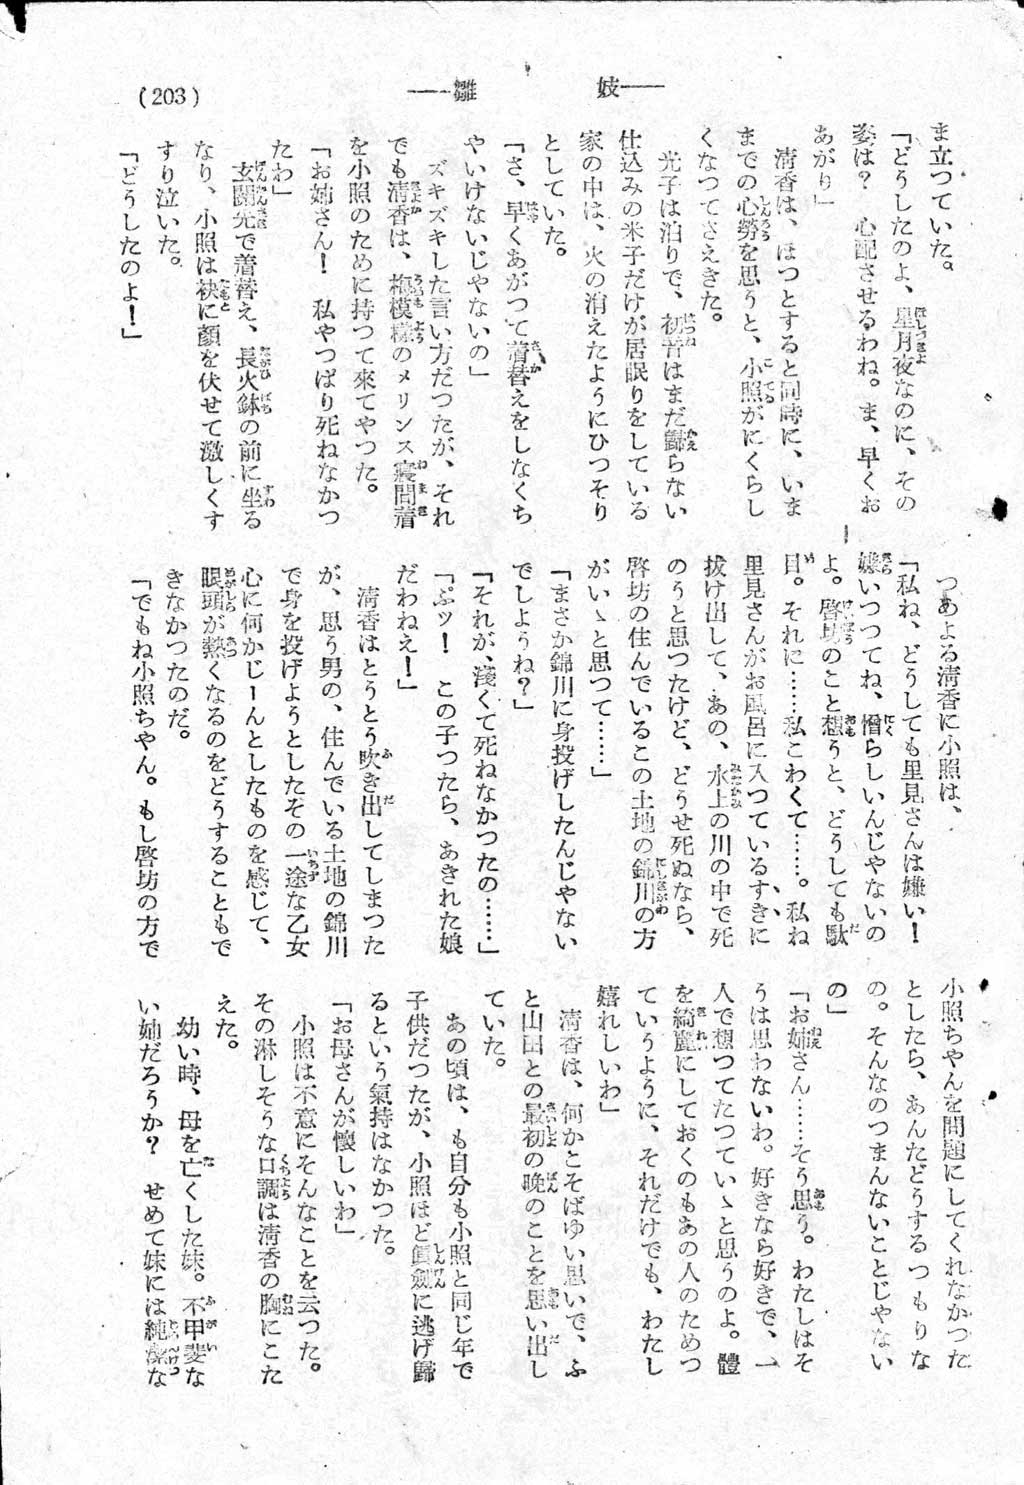 (203)
――雛 妓――
ま立つていた。
「どうしたのよ、星月夜なのに、その
姿は？ 心配させるわね。ま、早くお
あがり」
清香は、ほつとすると同時に、いま
までの心勞を思うと、小照がにくらし
くなつてさえきた。
光子は泊りで、初音はまだ歸らない
仕込みの米子だけが居眠りをしている
家の中は、火の消えたようにひつそり
としていた。
「さ、早くあがつて着替えをしなくち
やいけないじやないの」
ズキズキした言い方だつたが、それ
でも清香は、梅模樣のメリンス寢間着
を小照のために持つて來てやつた。
「お姉さん！ 私やつぱり死ねなかつ
たわ」
玄關先で着替え、長火鉢の前に坐る
なり、小照は袂に顏を伏せて激しくす
すり泣いた。
「どうしたのよ！」
つめよる清香に小照は、
「私ね、どうしても里見さんは嫌い！
嫌いつつてね、憎らしいんじやないの
よ。啓坊のこと想うと、どうしても駄
目。それに……私こわくて……。私ね
里見さんがお風呂に入つているすきに
拔け出して、あの、水上の川の中で死
のうと思つたけど、どうせ死ぬなら、
啓坊の住んでいるこの土地の錦川の方
がいゝと思つて……」
「まさか錦川に身投げしたんじやない
でしようね？」
「それが、淺くて死ねなかつたの……」
「ぷッ！ この子つたら、あきれた娘
だわねえ！」
清香はとうとう吹き出してしまつた
が、思う男の、住んでいる土地の錦川
で身を投げようとしたその一途な乙女
心に何かじーんとしたものを感じて、
眼頭が熱くなるのをどうすることもで
きなかつたのだ。
「でもね小照ちやん。もし啓坊の方で
小照ちやんを問題にしてくれなかつた
としたら、あんたどうするつもりな
の。そんなのつまんないことじやない
の」
「お姉さん……そう思う。わたしはそ
うは思わないわ。好きなら好きで、一
人で想つてたつていゝと思うのよ。體
を綺麗にしておくのもあの人のためつ
ていうように、それだけでも、わたし
嬉れしいわ」
清香は、何かとそばゆい思いで、ふ
と山田との最初の晩のことを思い出し
ていた。
あの頃は、も自分も小照と同じ年で
子供だつたが、小照ほど眞劍に逃げ歸
るという氣持はなかつた。
「お母さんが懷しいわ」
小照は不意にそんなことを云つた。
その淋しそうな口調は清香の胸にこた
えた。
幼い時、母を亡くした妹。不甲斐な
い姉だろうか？ せめて妹には純潔な